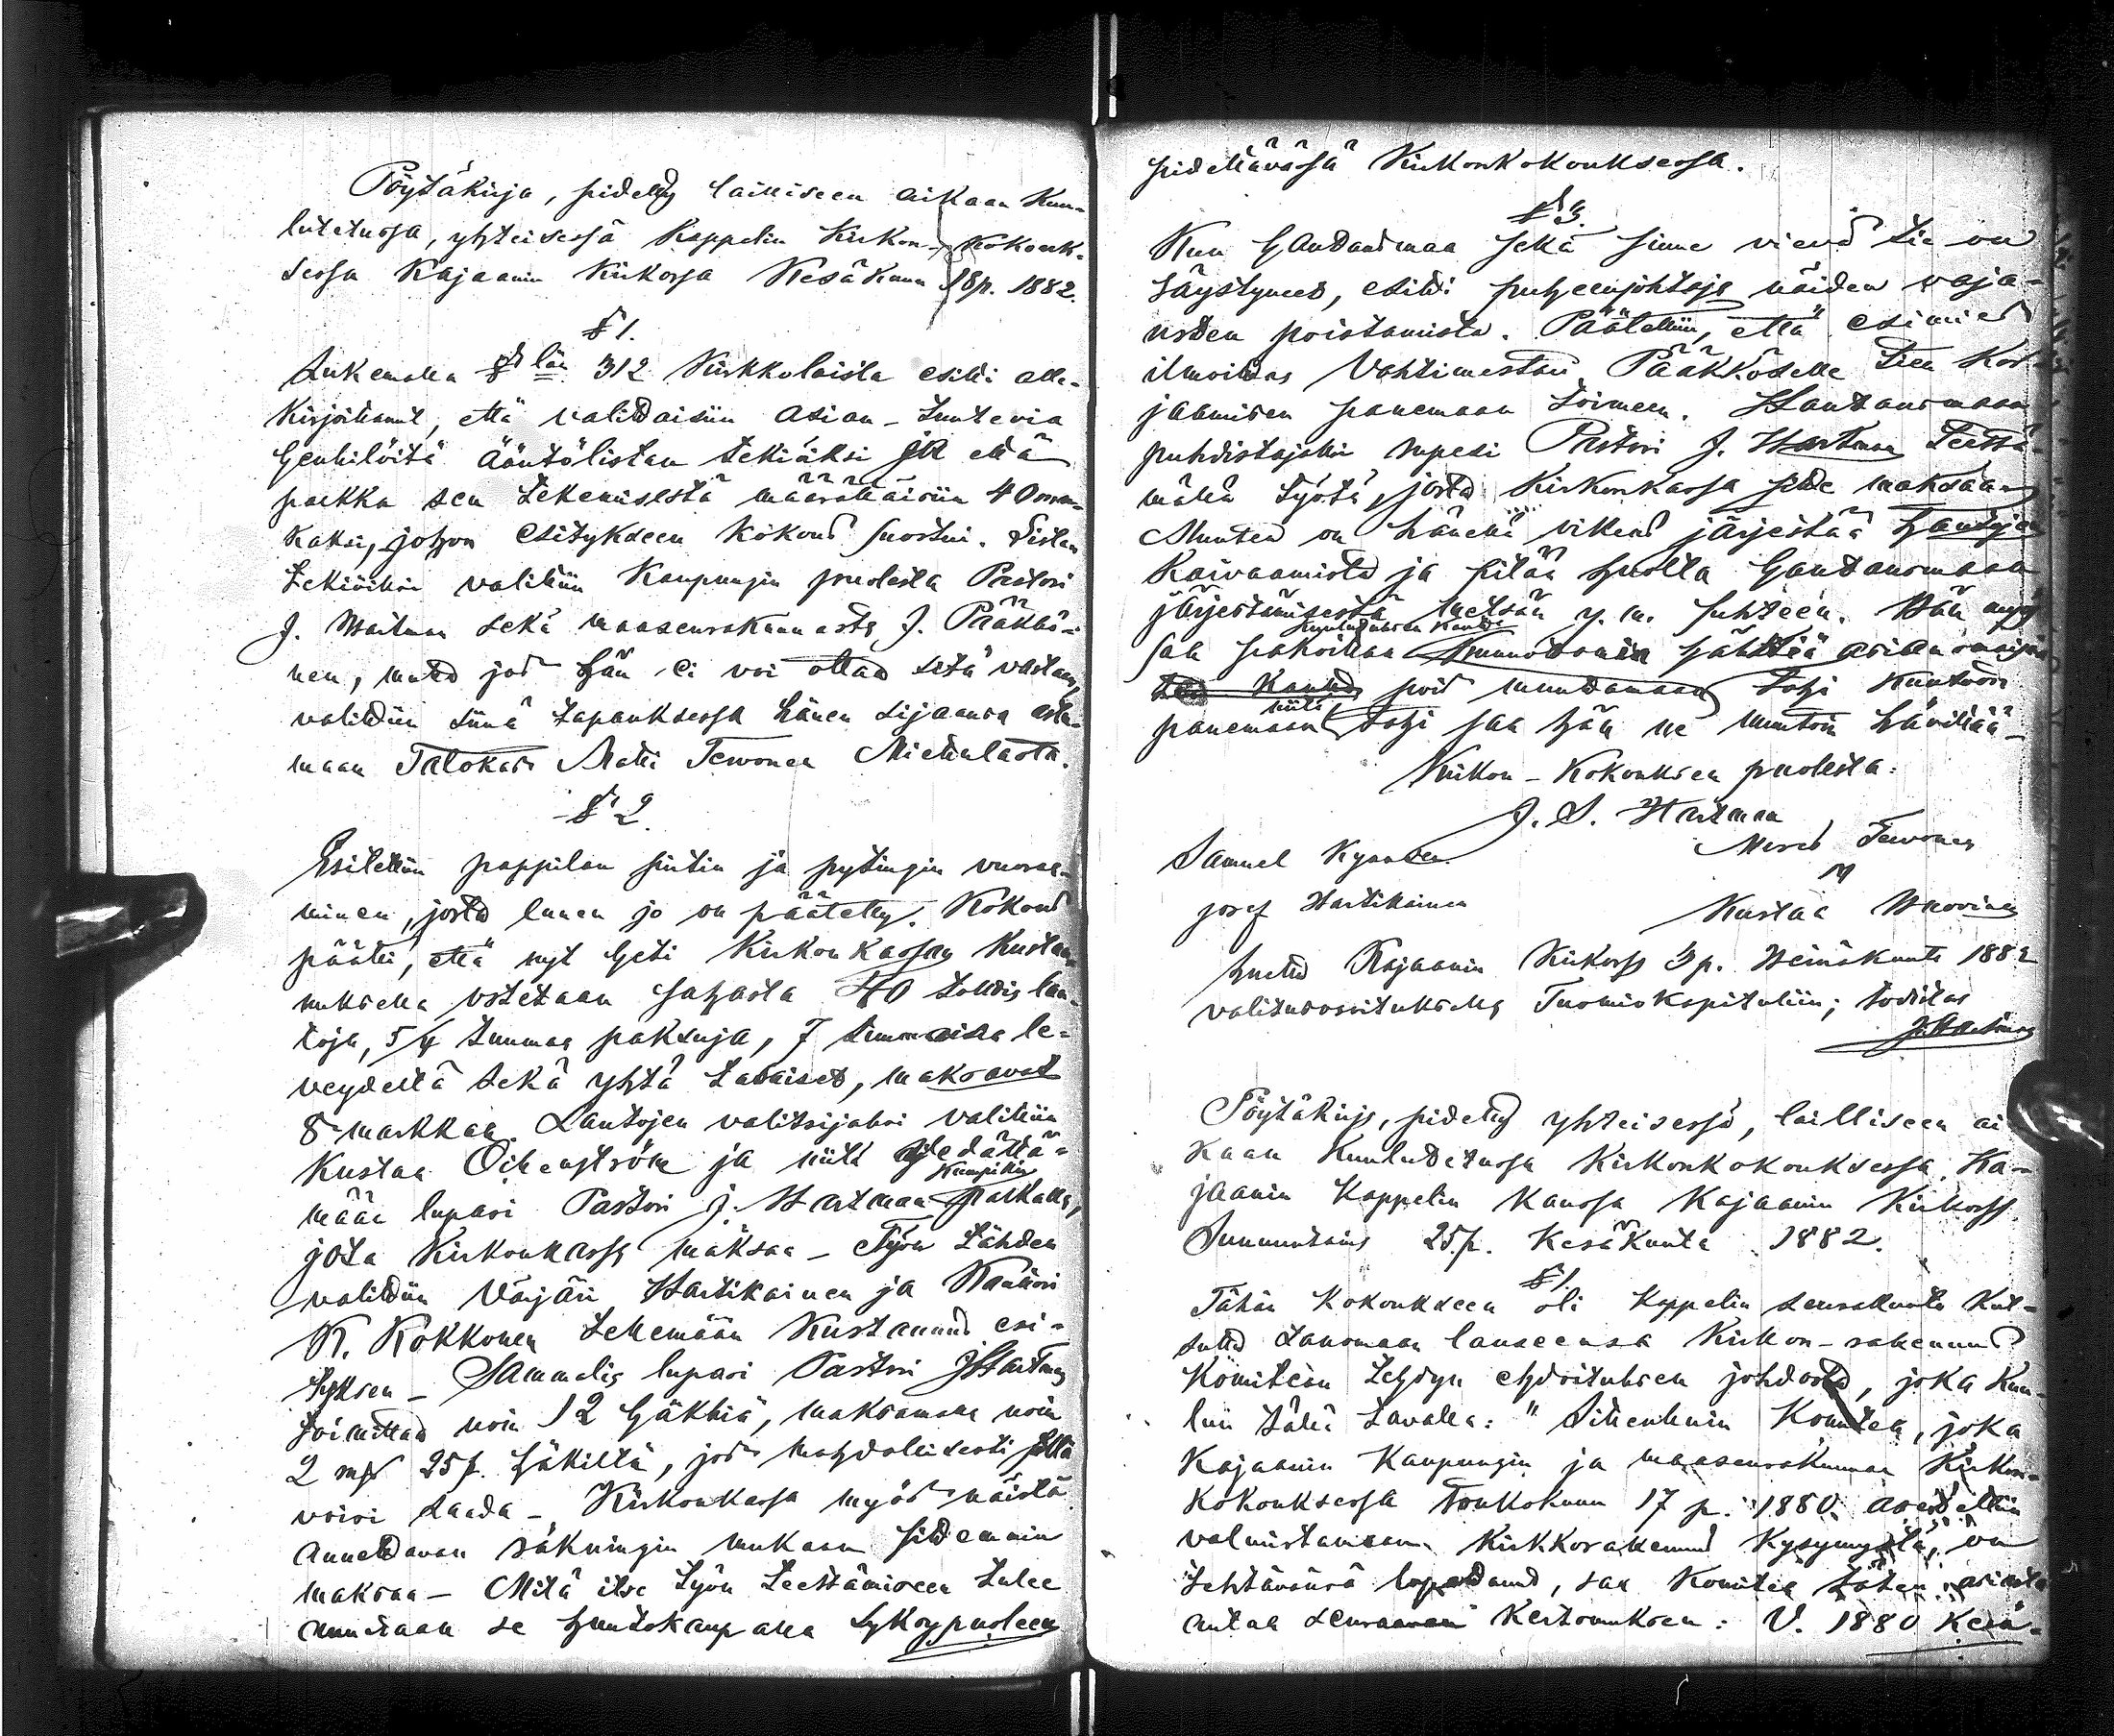 Pöytäkirja, pidetty lailliseen aikaan Kuu-
lutetussa, yhteisessä Kappelin Kirkon-Kokouk-
sessa Kajaanin Kirkossa Kesäkuun 18 p. 1882.
§ 1.
Lukemalla § län 312 Kirkkolaista esitti alle-
Kirjoittanut, että valittaisiin asian-tuntevia
henkilöitä ääntölistan tekiäksi ja että
palkka sen tekemisestä määrättäisiin 40 mar-
kaksi, johon esitykseen Kokous suostui. Listan
tekiöiksi valittiin Kaupungin puolesta Pastori
J. Hartman sekä maaseurakunnasta J. Pääkkö-
nen, mutta jos hän ei voi ottaa sitä vastaan,
valittiin siinä tapauksessa hänen sijaansa astu-
maan Talokas Matti Tervonen Mietulasta.
§ 2.
Esitettiin pappilan puitin ja pytingin vuoraa-
minen, josta ennen jo on päätetty. Kokous
päätti, että nyt heti Kirkon Kassan Kustan-
nuksella ostetaan sahasta 40 toltia lau-
toja, 5/4 tuumaa paksuja, 7 tuumaisia le-
veydeltä sekä yhtä tasaiset, maksavat
8 markkaa. Lautojen valitsijaksi valittiin
Kustaa Öhenström ja niitä vedättä-
mään lupasi Pastori J. Hartman Kumpikin palkalla,
jota Kirkonkassa maksaa - Työn tähden
valittiin Värjäri Hartikainen ja Kanttori
K. Kokkonen tekemään Kustannus esi-
tyksen - Sammalia lupasi Pastori J Hartman
toimittaa noin 12 häkkiä, maksamaan noin
2 mk 25 p. häkiltä, jos mahdollisesti sillä
voisi saada - Kirkonkassa myös näistä
annettavan räkningin mukaan sittemmin
maksaa - Mitä itse työn teettämiseen tulee
annetaan se huutokaupalla Syksypuoleen
pidettävässä Kirkonkokouksessa.
§ 3.
Kun hautausmaa sekä sinne vievä tie on
säystyneet, esitti puheenjohtaja näiden vaja-
usten poistamista. Päätettiin, että esimies
ilmoittaa Vahtimestari Pääkköselle tien Kor-
jaamisen panemaan toimeen. Hautausmaan
puhdistajaksi rupesi Pastori J. Hartman teettä-
mällä työtä, josta Kirkonkassa sitte maksaa.
Muuten on hänellä oikeus järjestää hautojen
Kaivaamista ja pitää huolta hautausmaan
järjestämisestä metsän y. m. suhteen. Hän myös
saa pakoittaa Kuulutuksen kautta hähtiä asian omaisia
pois muuttamaan tahi Kuntoon
panemaan niitä tahi saa hän ne muutoin hävittää -
Kirkon-Kokouksen puolesta:
J. S. Hartman
Samuel Kyander Matti Tervonen
Josef Hartikainen Kustaa Wuorinen
Luettu Kajaanin Kirkossa 3 p. Heinäkuuta 1882
valitusosoituksella Tuomiokapituliin; todistaa
J. Hartman
Pöytäkirja, pidetty yhteisessä, lailliseen ai-
Kaan Kuulutetussa Kirkonkokouksessa Ka-
jaanin Kappelin Kanssa Kajaanin Kirkossa
Sunnuntaina 25 p. Kesäkuuta 1882.
§ 1.
Tähän Kokoukseen oli Kappelin seurakunta Kut-
suttu sanomaan lauseensa Kirkon-rakennus
Komitean tehdyn ehdoituksen johdosta, joka Kuu-
luu tällä tavalla: "Sittenkuin Komitea, joka
Kajaanin Kaupungin ja maaseurakunnan Kirkon-
Kokouksessa Toukokuun 17 p. 1880 asetettiin
valmistamaan Kirkkorakennus Kysymystä, on
tehtävänsä lopettanut, saa Komitea tästä asiasta
antaa seuraavan Kertomuksen: V. 1880 Kesä-